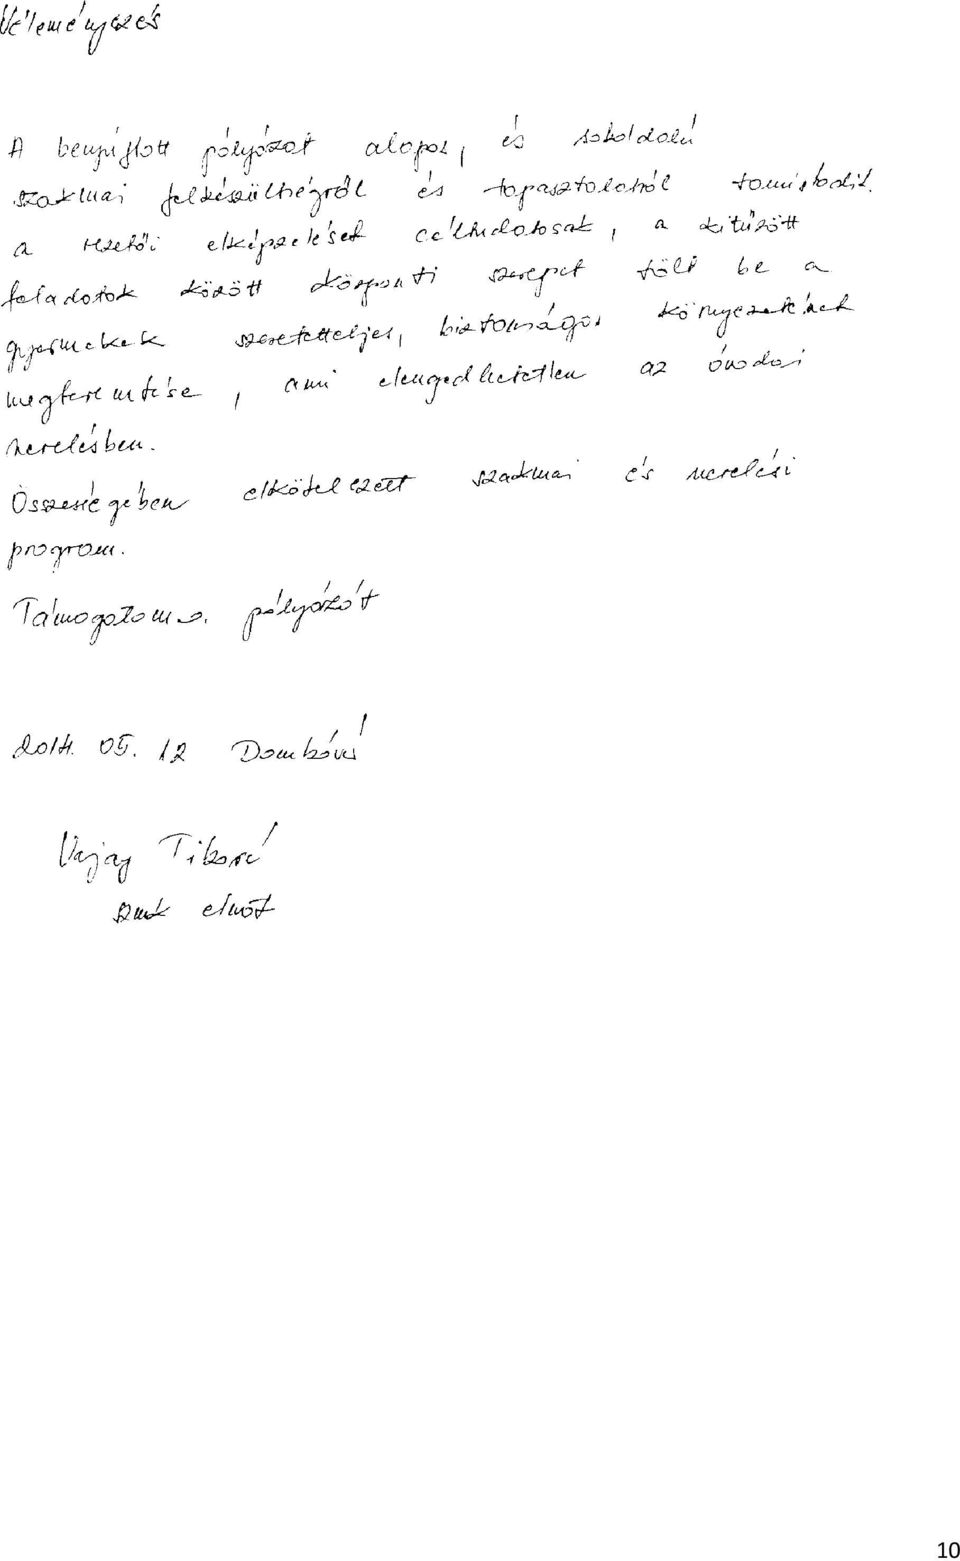 Véleményezés
A benyújtott pályázat alapos, és sokoldalú
szakmai felkészültségről és tapasztalatról tanúskodik.
a vezetői elképzelések céltudatosak, a kitűzött
feladatok között központi szerepet tölt be a
gyermekek szeretetteljes, biztonságos környezetének
megteremtése, ami elengedhetetlen az óvodai
nevelésben.
Összességében elkötelezett szakmai és nevelési
program.
Támogatom a pályázót
2014. 05. 12 Dombóvár
Vajay Tiborné
szmk elnök
10